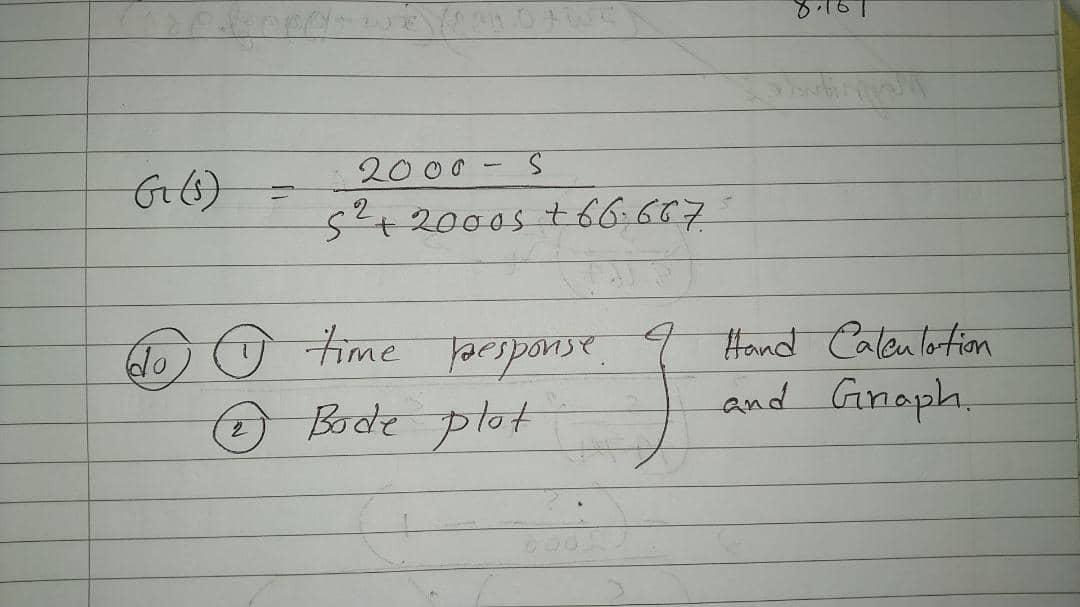 8.161
G(s) = 2000 - s
s² + 2000s + 66.667
do ① time response } Hand Calculation
② Bode plot and Graph.